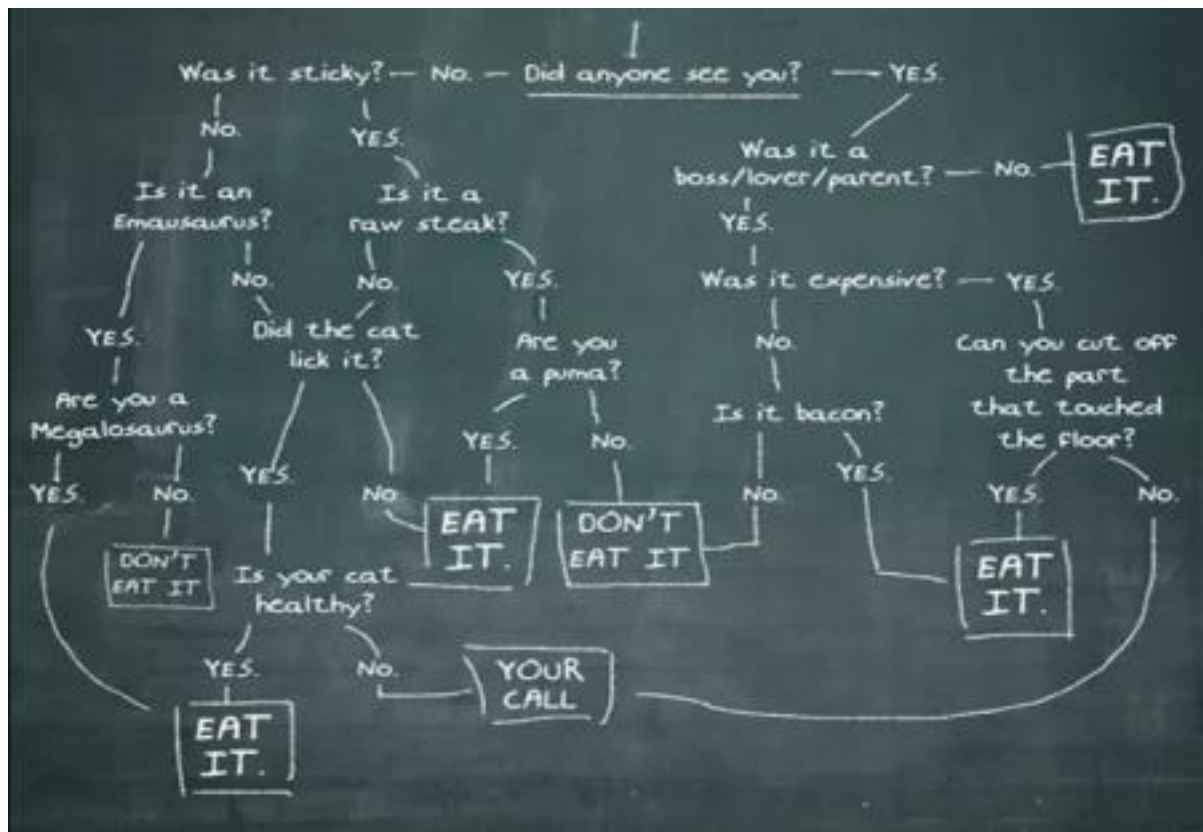 Was it sticky? — No. — Did anyone see you? — YES.
No.
YES.
Was it a
boss/lover/parent? — No.
EAT
IT.
Is it an
Emausaurus?
Is it a
raw steak?
YES.
No.
No.
YES.
Was it expensive? — YES.
YES.
Did the cat
lick it?
Are you
a puma?
No.
Can you cut off
the part
that touched
the floor?
Are you a
Megalosaurus?
Is it bacon?
YES.
No.
YES.
No.
YES.
No.
No.
YES.
YES.
No.
DON'T
EAT IT
EAT
IT.
DON'T
EAT IT
EAT
IT.
Is your cat
healthy?
YES.
No.
YOUR
CALL
EAT
IT.